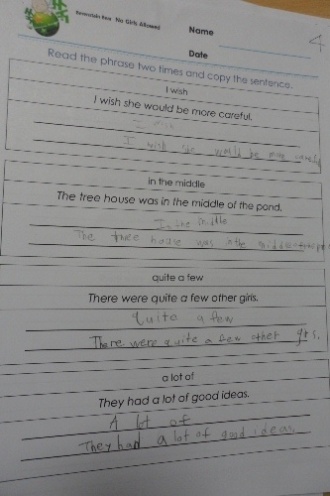 No Girls Allowed
Name
4
Date
Read the phrase two times and copy the sentence.
I wish
I wish she would be more careful.
I wish
I wish she would be more
in the middle
The tree house was in the middle of the pond.
middle
The tree house was
quite a few
There were quite a few other girls.
Quite a few
There were quite a few other
a lot of
They had a lot of good ideas.
A lot of
They had a lot of good ideas.